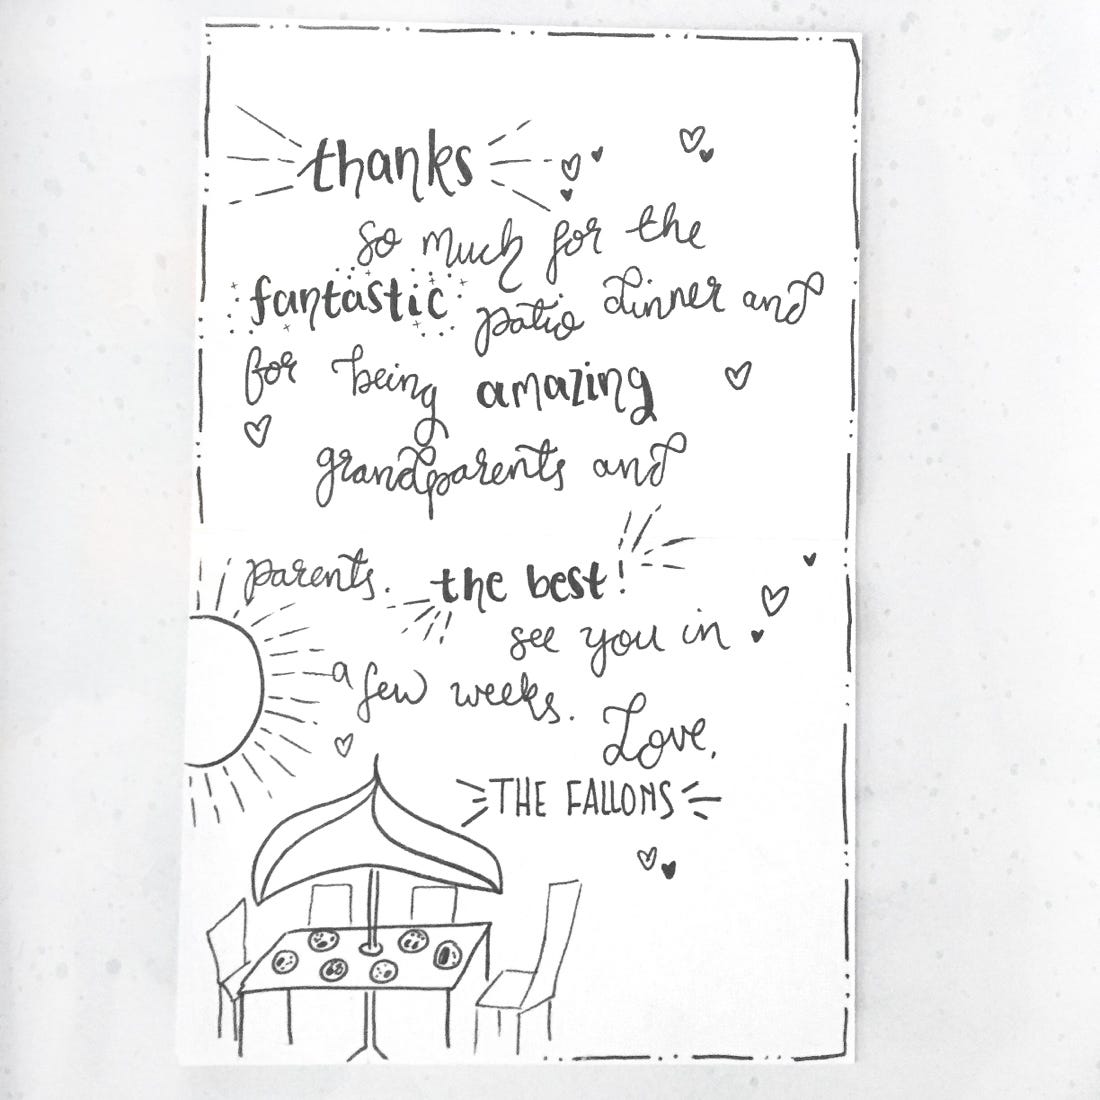 thanks
so much for the
fantastic patio dinner and
for being amazing
grandparents and
parents. the best!
see you in
a few weeks.
Love,
THE FALLONS